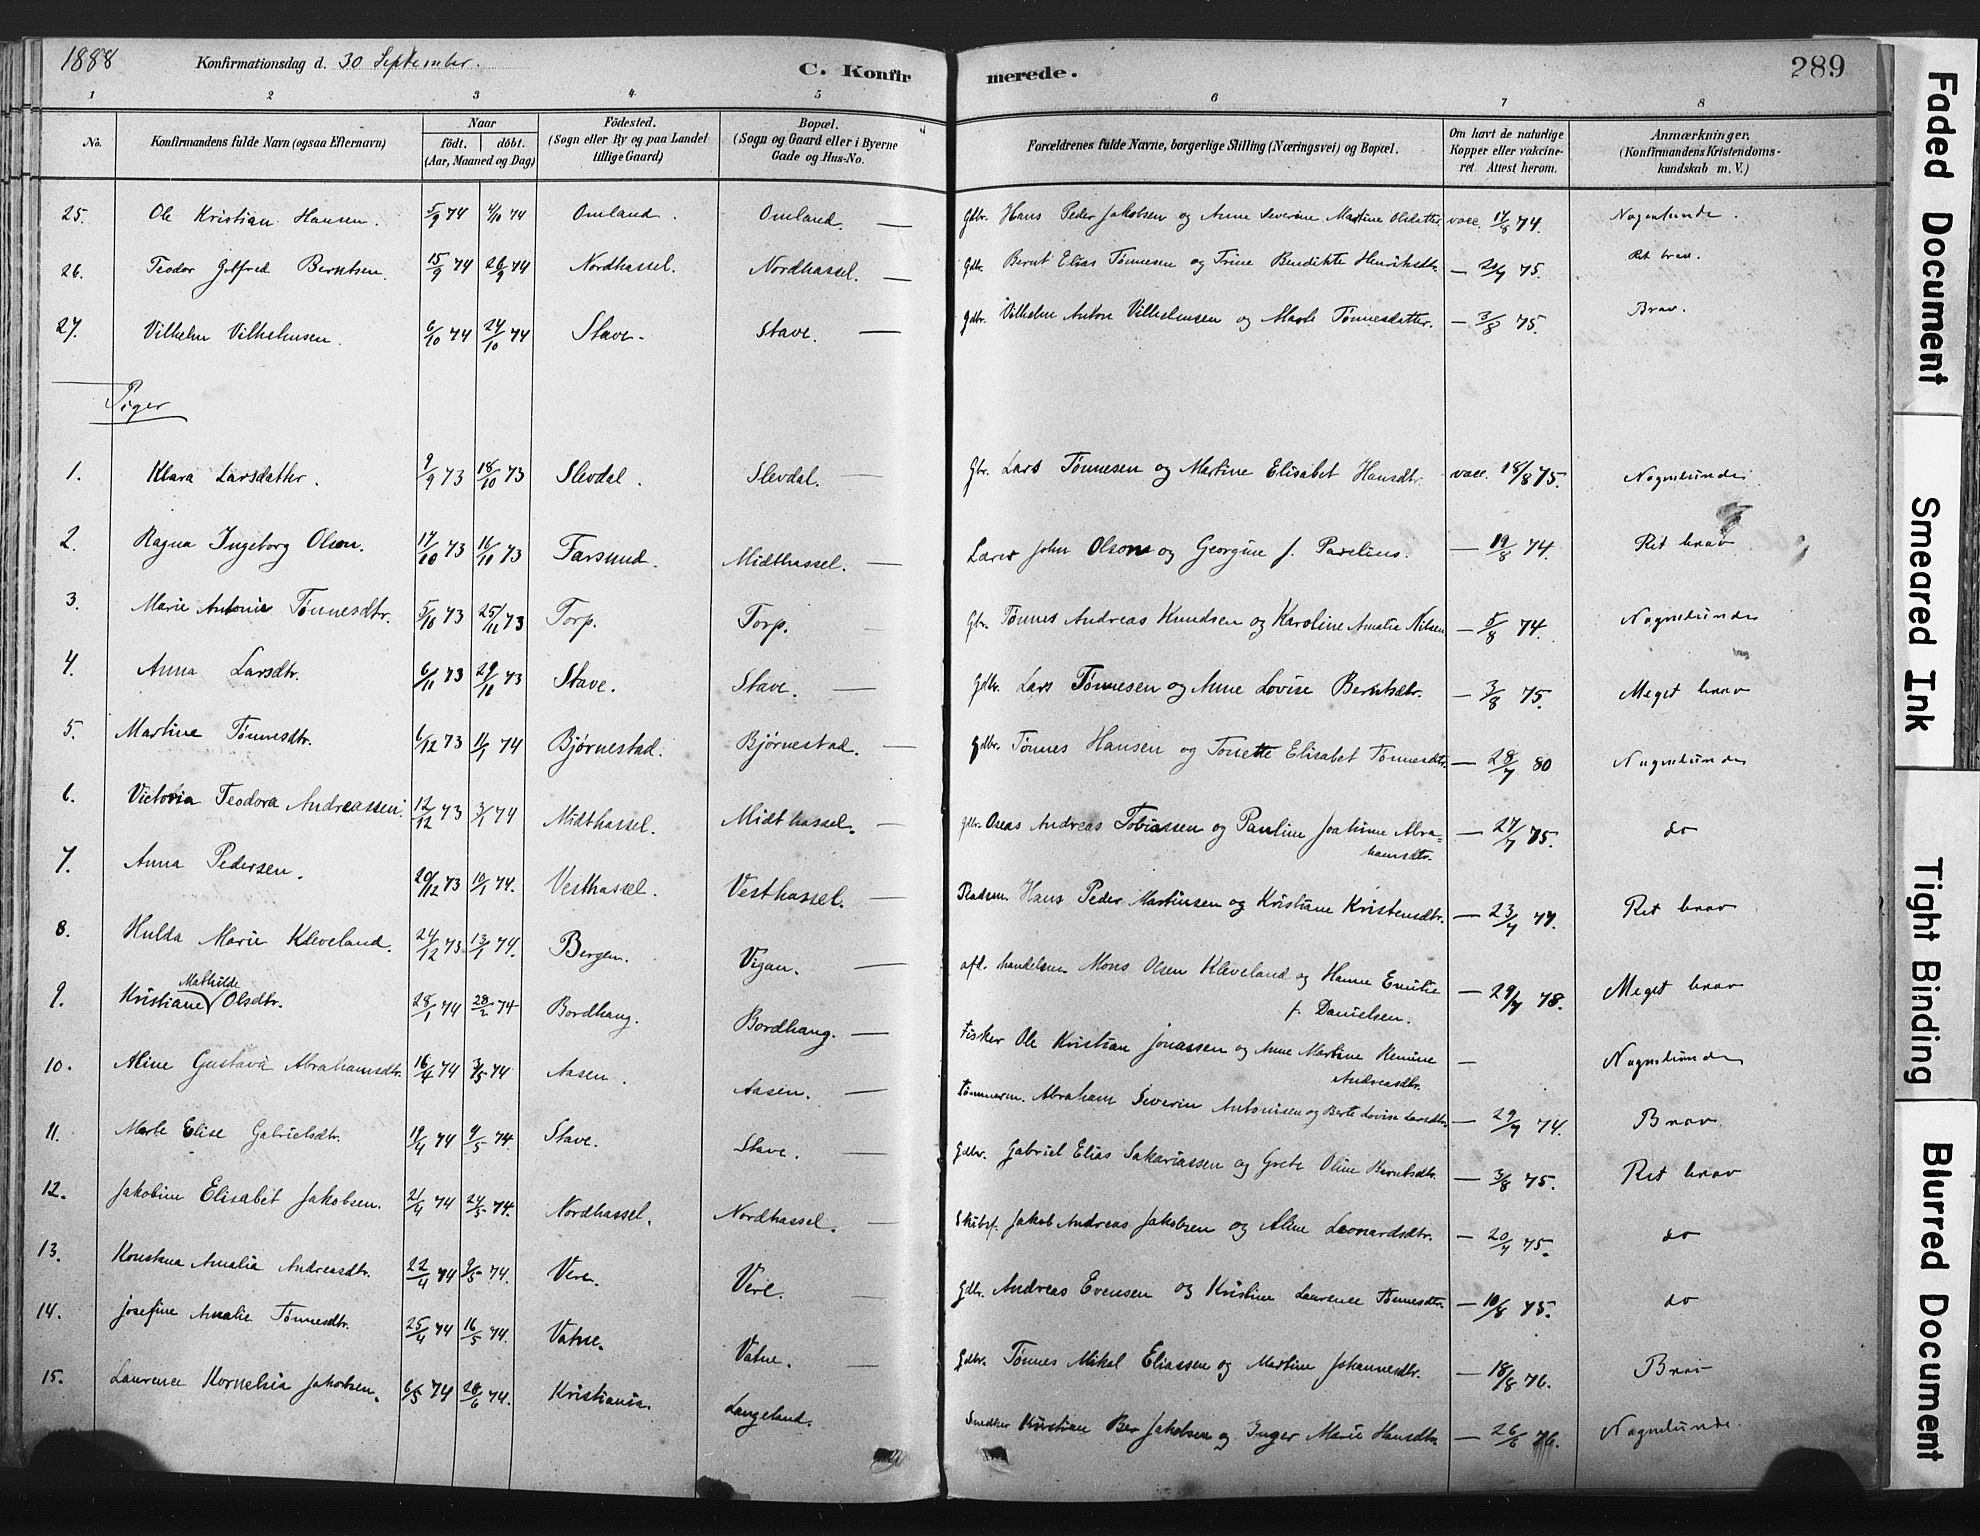 1888 Konfirmationsdag d. 30 September. C. Konfirmerede. 289
1 2 3 4 5 6 7 8
No. Konfirmandens fulde Navn (ogsaa Efternavn) Naar født. døbt. (Aar, Maaned og Dag) Fødested. (Sogn eller By og paa Landet tillige Gaard) Bopæl. (Sogn og Gaard eller i Byerne Gade og Hus-No. Forældrenes fulde Navne, borgerlige Stilling (Næringsvei) og Bopæl. Om havt de naturlige Kopper eller vakcineret. Attest herom. Anmærkninger. (Konfirmandens Kristendomskundskab m. V.)
25. Ole Kristian Hansen. 5/9 74 4/10 74 Omland. Omland. — Gdbr. Hans Peder Jakobsen og Anne Severine Martine Olsdatter vacc. 17/8 74. Nogenlunde.
26. Teodor Gotfred Berntsen. 15/9 74 26/9 74 Nordhassel. Nordhassel. — Gdbr. Bernt Elias Tønnesen og Trine Bendikte Henriksdtr. — 20/7 75. Ret brav.
27. Vilhelm Vilhelmsen. 6/10 74 24/10 74 Stave. Stave. — Gdbr. Vilhelm Anton Vilhelmsen og Marte Tønnesdatter. — 3/8 75. Brav.
Piger
1. Klara Larsdatter. 9/9 73 18/10 73 Slevdal. Slevdal. — Gbr. Lars Tønnesen og Martine Elisabet Hansdtr. vacc. 18/8 75. Nogenlunde
2. Ragna Ingeborg Olson. 17/10 73 16/11 73 Farsund. Midthassel. — Lærer John Olson og Georgine f. Parelius. — 19/8 74. Ret brav
3. Marie Antonie Tønnesdtr. 5/10 73 25/11 73 Torp. Torp. — Gbr. Tønnes Andreas Knudsen og Karoline Amalia Nilsen — 5/8 74. Nogenlunde
4. Anna Larsdtr. 6/11 73 29/10 73 Stave. Stave. — Gdbr. Lars Tønnesen og Anne Lovise Berntsdtr. — 3/8 75. Meget brav
5. Martine Tønnesdtr. 6/12 73 11/1 74 Bjørnestad. Bjørnestad. — Gdbr. Tønnes Hansen og Tonette Elisabet Tønnesdtr. — 28/7 80 Nogenlunde
6. Victoria Teodora Andreassen. 12/12 73 3/1 74 Midthassel. Midthassel. — Gdbr. Oseas Andreas Tobiassen og Pauline Joakime Abrahamsdtr. — 27/7 75. do
7. Anna Pedersen. 20/12 73 10/1 74. Vesthassel. Vesthassel. — Pladsm. Hans Peder Martinsen og Kristiane Kristensdtr. — 23/7 77. Ret brav
8. Hulda Marie Kleveland. 24/12 73 13/1 74. Bergen. Vigan. — afd. handelsm. Mons Olsen Kleveland og Hanne Emilie f. Danielsen. — 29/7 78. Meget brav
9. Kristiane Mathilde Olsdtr. 28/1 74 28/2 74 Bordhaug. Bordhaug. — Fisker Ole Kristian Jonassen og Anne Martine Remine Andreasdtr. — Nogenlunde
10. Aline Gustava Abrahamsdtr. 16/4 74 3/5 74 Aasen. Aasen. — Tømmerm. Abraham Severin Antonisen og Berte Lovise Larsdtr. — 29/7 74. Brav
11. Marte Elise Gabrielsdtr. 19/4 74 9/5 74. Stave. Stave. — Gdbr. Gabriel Elias Sakariassen og Grete Oline Berntsdtr. — 3/8 75. Ret brav
12. Jakobine Elisabet Jakobsen. 21/4 74 24/5 74. Nordhassel. Nordhassel. — Skibsf. Jakob Andreas Jakobsen og Aline Leonardsdtr. — 20/7 75. do
13. Konstana Amalia Andreasdtr. 22/4 74 9/5 74. Vere. Vere. — Gdbr. Andreas Evensen og Kristine Laurence Tønnesdtr. — 10/8 75. do
14. Josefine Amalie Tønnesdtr. 25/4 74 16/5 74. Vatne. Vatne. — Gdbr. Tønnes Mikal Eliassen og Martine Johannesdtr. — 18/8 76. Brav
15. Laurence Kornelia Jakobsen. 6/5 74 28/6 74. Kristiania. Langeland. Snedker Kristian Ber Jakobsen og Inger Marie Hansdtr. — 26/6 76. Nogenlunde.
Faded Document
Smeared Ink
Tight Binding
Blurred Document